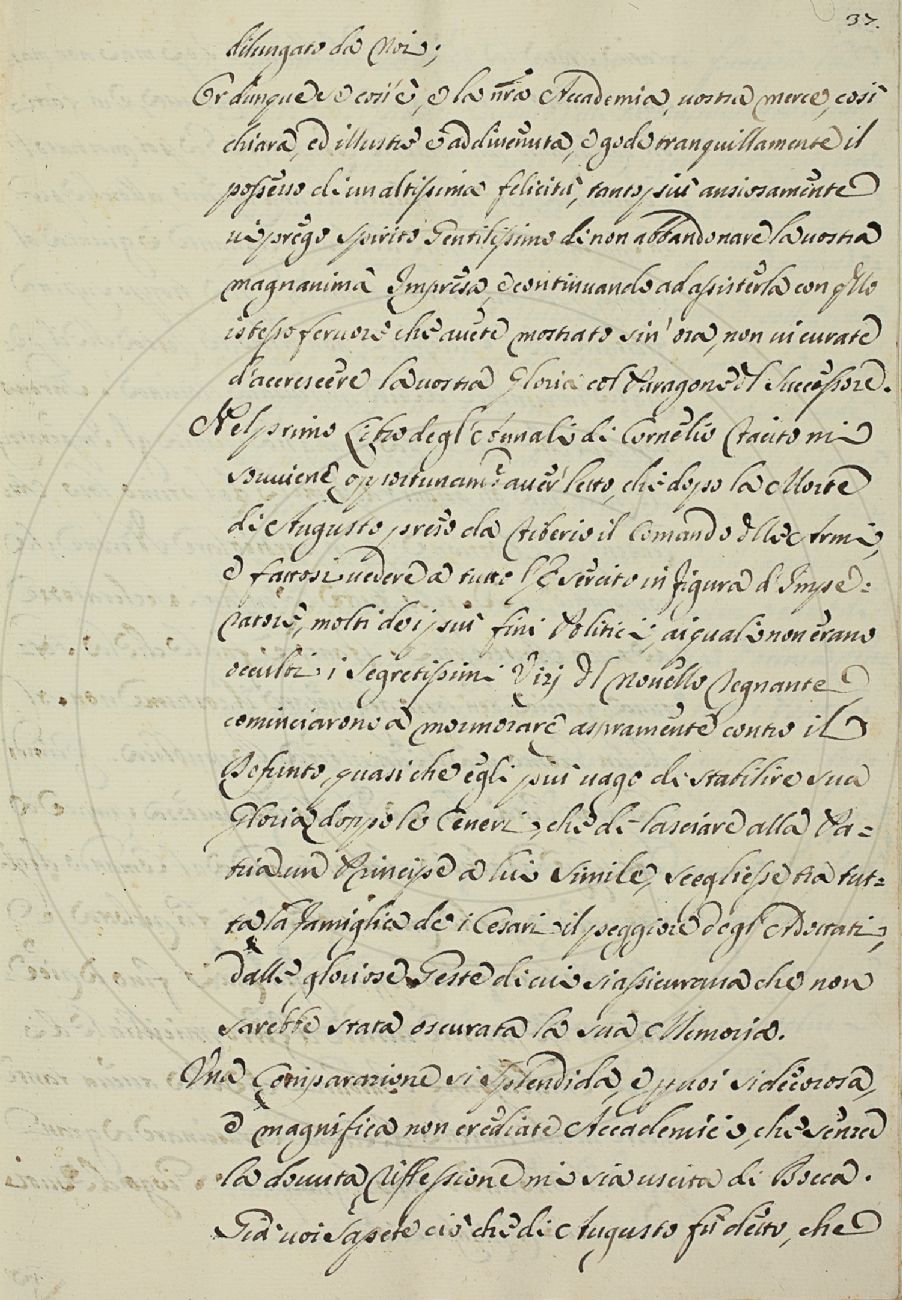 37.
dilungato da Noi;
Or dunque se così è, e la nr̃a Accademia, vostra mercè, così
chiara, ed illustre è addivenuta, e gode tranquillamente il
possesso di un altissima felicità, tanto più ansiosamente
vi prego Spirito Gentilissimo di non abbandonare la vostra
magnanima Impresa, e continuando ad assisterla con qllo
istesso fervore che avete mostrato sin' ora, non vi curate
d'accrescere la vostra Gloria col Paragone dl Successore.
Nel primo Libro degl'Annali di Cornelio Tacito mi
souviene opportunam.e aver letto, che dopo la Morte
di Augusto preso da Tiberio il Comando dlle Armi,
e fattosi vedere a tutto l'Esercito in figura d'Impe=
ratore, molti de i più fini Politici, ai quali non erano
occulti i Segretissimi Vizj dl Novello Regnante
cominciarono a mormorare aspramente contro il
Defunto, quasi che egli più vago di stabilire sua
Gloria doppo le Ceneri, che di lasciare alla Pa=
tria un Principe a lui simile, scegliesse tra tut=
ta la famiglia de i Cesari il peggiore degl'Adottati,
dalle gloriose Geste di cui si assicurava che non
sarebbe stata oscurata la sua Memoria.
Una Comparazione si splendida, e però si decorosa,
e magnifica non crediate Accademici, che senza
la dovuta Riflessione mi sia uscita di Bocca.
Già voi sapete ciò che di Augusto fù detto, che